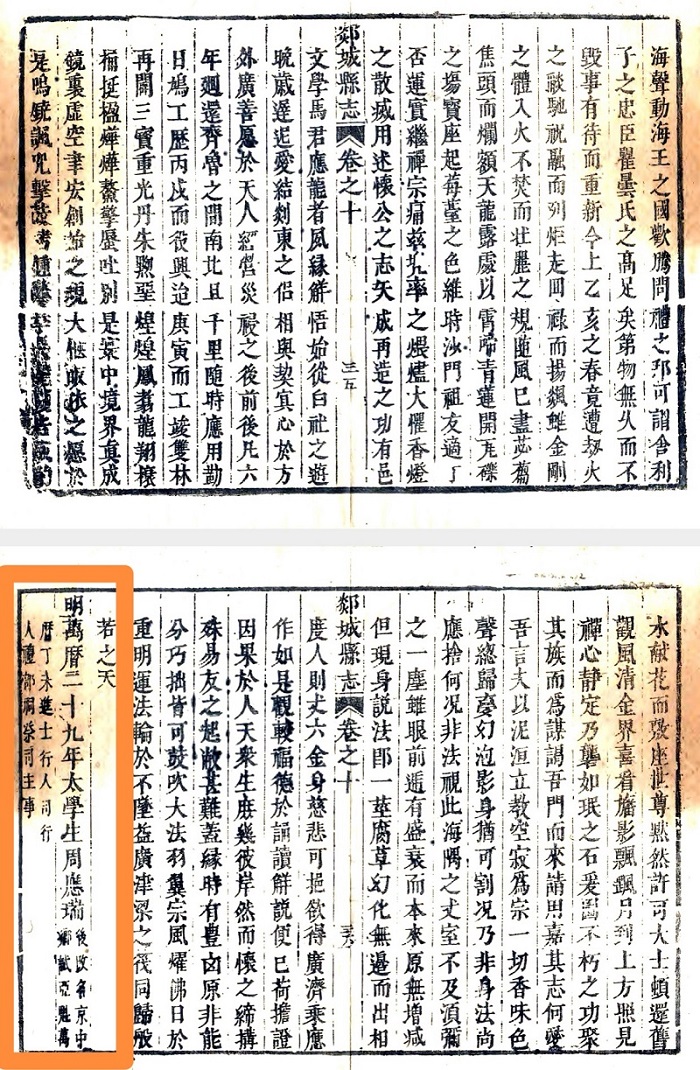 海聲動海王之國歡騰問禮之邦可謂舍利
子之忠臣瞿曇氏之髙足矣第物無久而不
毀事有待而重新今上乙亥之春竟遭刼火
之燄馳祝融而列炬走囘祿而揚飆雖金剛
之體入火不焚而壮麗之規隨風已盡苾蒭
焦頭而爛額天龍露處以霄啼青蓮開瓦礫
之塲寶座起莓薹之色維時沙門祖友適丁
否運實繼禪宗痛兹兜率之煨燼大懼香燈
之散滅用述懷公之志矢成再造之功有邑
郯城縣志 卷之十 三五
文學馬君應龍者夙緣觧悟始從白社之遊
晩歳遲迟愛結剡東之侣相與契宾心於方
外廣善愿於天人經營災祲之後前後凡六
年廻還齊魯之間南北且千里隨時應用勤
日鳩工歷丙戌而役興迨庚寅而工竣雙林
再開三寶重光丹朱堊煌煌鳳翥龍翔
桷挺楹燁燁鰲擎蜃吐别是寰中境界真成
鏡裏虚空聿宏創始之規大極皈依之愿於
是鳴鐃諷唄擊鼓考鍾
水献花而發座世尊默然許可大士頓還舊
觀風清金界喜看旛影飄飄月到上方照見
禪心静定乃礱如珉之石爰圖不朽之功聚
其族而爲謀謁吾門而來請用嘉其志何愛
吾言夫以泥洹立教空寂爲宗一切香味色
聲總歸夢幻泡影身猶可割况乃非身法尚
應捨何况非法視此海隅之丈室不及湏彌
之一塵雖眼前遞有盛衰而本來原無增减
但現身説法即一莖腐草幻化無邊而出相
郯城縣志 卷之十 三六
度人則丈六金身慈悲可挹欲得廣濟乗應
作如是觀較福德於誦讀觧説便已荷擔證
因果於人天衆生庶幾彼岸然而懷之締搆
殊易友之起敝甚難蓋緣時有豊凶原非能
分巧拙皆可鼓吹大法羽翼宗風燿佛日於
重明運法輪於不墜益廣津梁之筏同歸般
若之天
明萬曆二十九年太學生周應瑞 後改名京中 鄉試亞魁萬
曆丁未進士行人司行
人禮部祠祭司主事